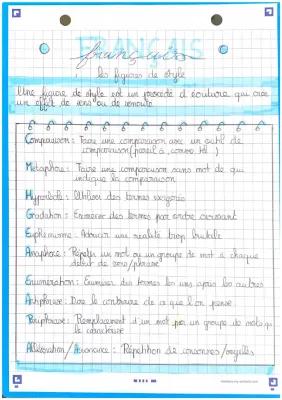 FRANÇAIS
français
les figures de style
Une figure de style est un procédé d'écriture qui crée
un effet de sens ou de sonorité
Comparaison : Faire une comparaison avec un outil de
comparaison (pareil à, comme, tel)
Métaphore : Faire une comparaison sans mot de qui
indique la comparaison
Hyperbole : Utiliser des termes exagérés
Gradation : Enumérer des termes par ordre croissant
Euphémisme : Adoucir une réalité trop brutale
Anaphore : Répéter un mot ou un groupe de mot à chaque
début de vers/phrase
Enumération : Enumérer des termes les uns après les autres
Antiphrase : Dire le contraire de ce que l'on pense
Périphrase : Remplacement d'un mot par un groupe de mots qui
le caractérise
Allitération/Assonance : Répétition de consonnes/voyelles